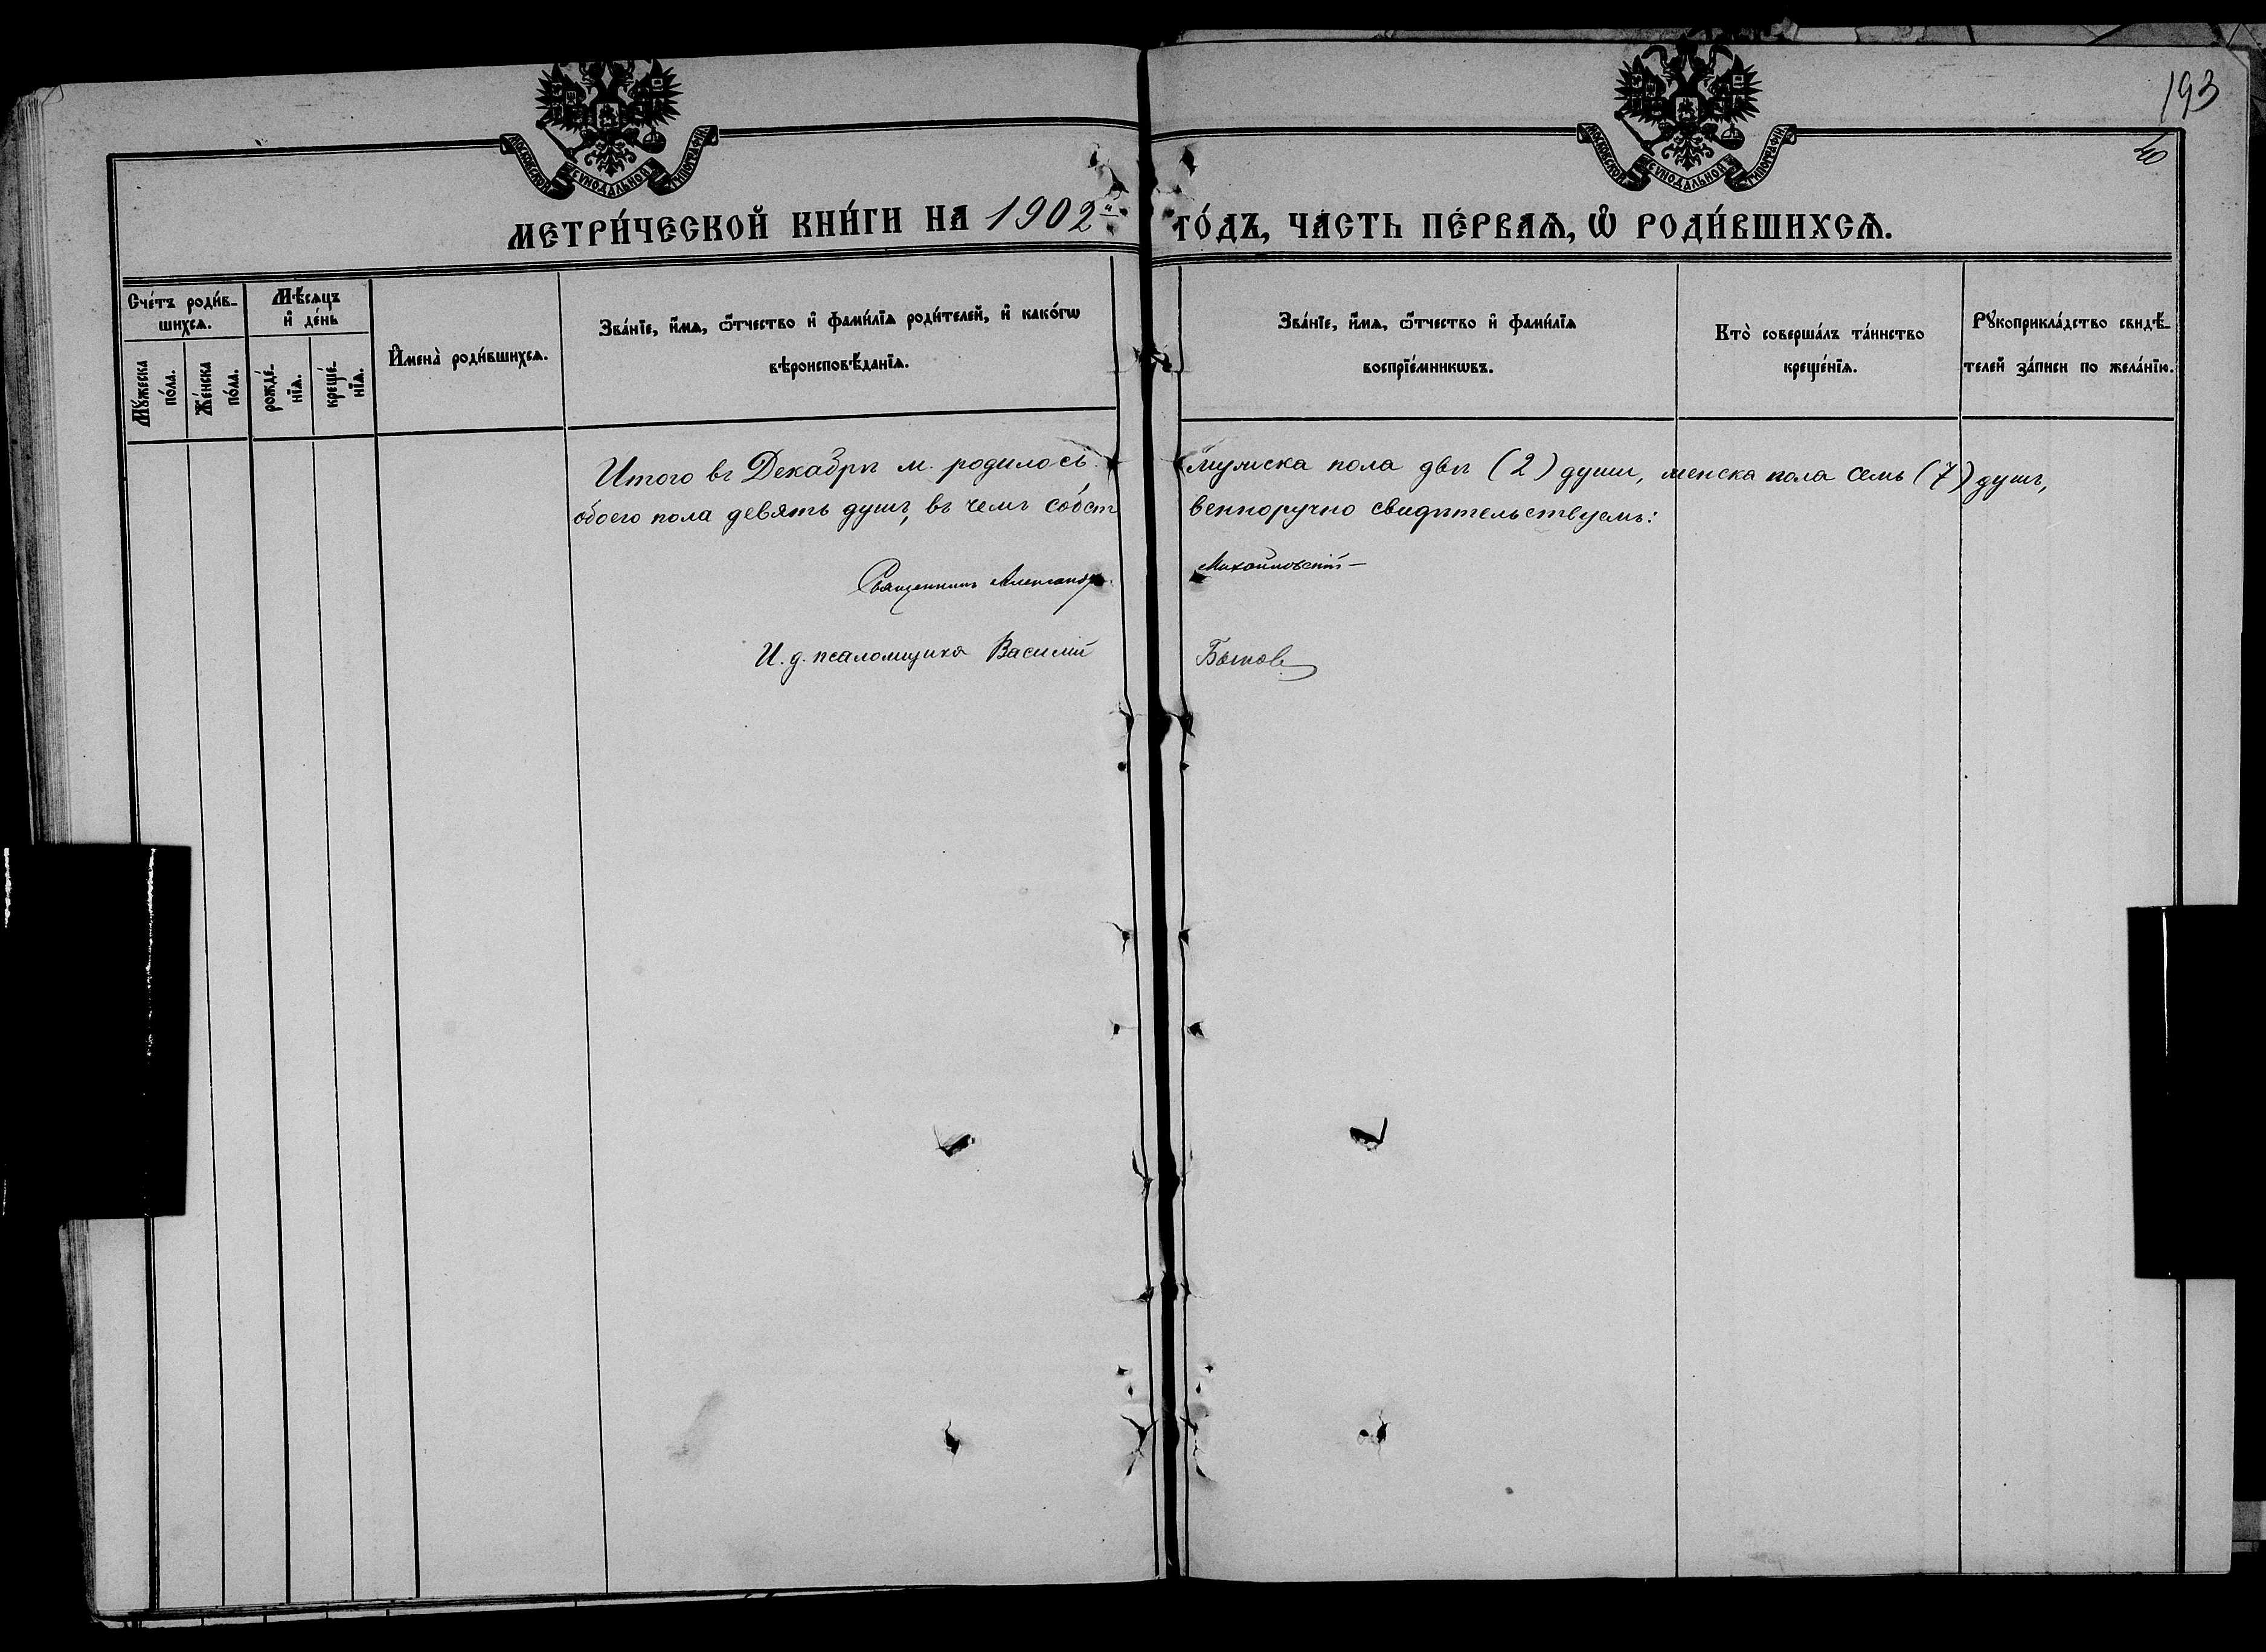 193
40
МОСКОВСКОЙ СѴНОДАЛЬНОЙ ТИПОГРАФІИ
МОСКОВСКОЙ СѴНОДАЛЬНОЙ ТИПОГРАФІИ
МЕТРИ́ЧЕСКОЙ КНИ́ГИ НА 1902й ГО́ДЪ, ЧА́СТЬ ПЕ́РВАѦ, Ѽ РОДИ́ВШИХСѦ.
Сче́тъ роди́в-
шихсѧ.
Мꙋ́жеска
по́ла.
Же́нска
по́ла.
Мѣ́сѧцъ
и҆ де́нь
рожде́-
нїѧ.
креще́-
нїѧ.
И҆мена̀ роди́вшихсѧ.
Зва́нїе, и҆́мѧ, ѻ҆́тчество и҆ фами́лїѧ роди́телей, и҆ како́гѡ
вѣроисповѣ́данїѧ.
Зва́нїе, и҆́мѧ, ѻ҆́тчество и҆ фами́лїѧ
воспрїе́мникѡвъ.
Кто̀ соверша́лъ та́инство
креще́нїѧ.
Рꙋкоприкла́дство свидѣ́-
телей за́писи по жела́нїю.
Итого въ Декабрѣ м. родилось мужска пола двѣ (2) души, женска пола семь (7) душъ,
обоего пола девять душъ, въ чемъ собст венноручно свидѣтельствуемъ:
Священникъ Александръ Михайловскій
И. д. псаломщика Василій Быковъ